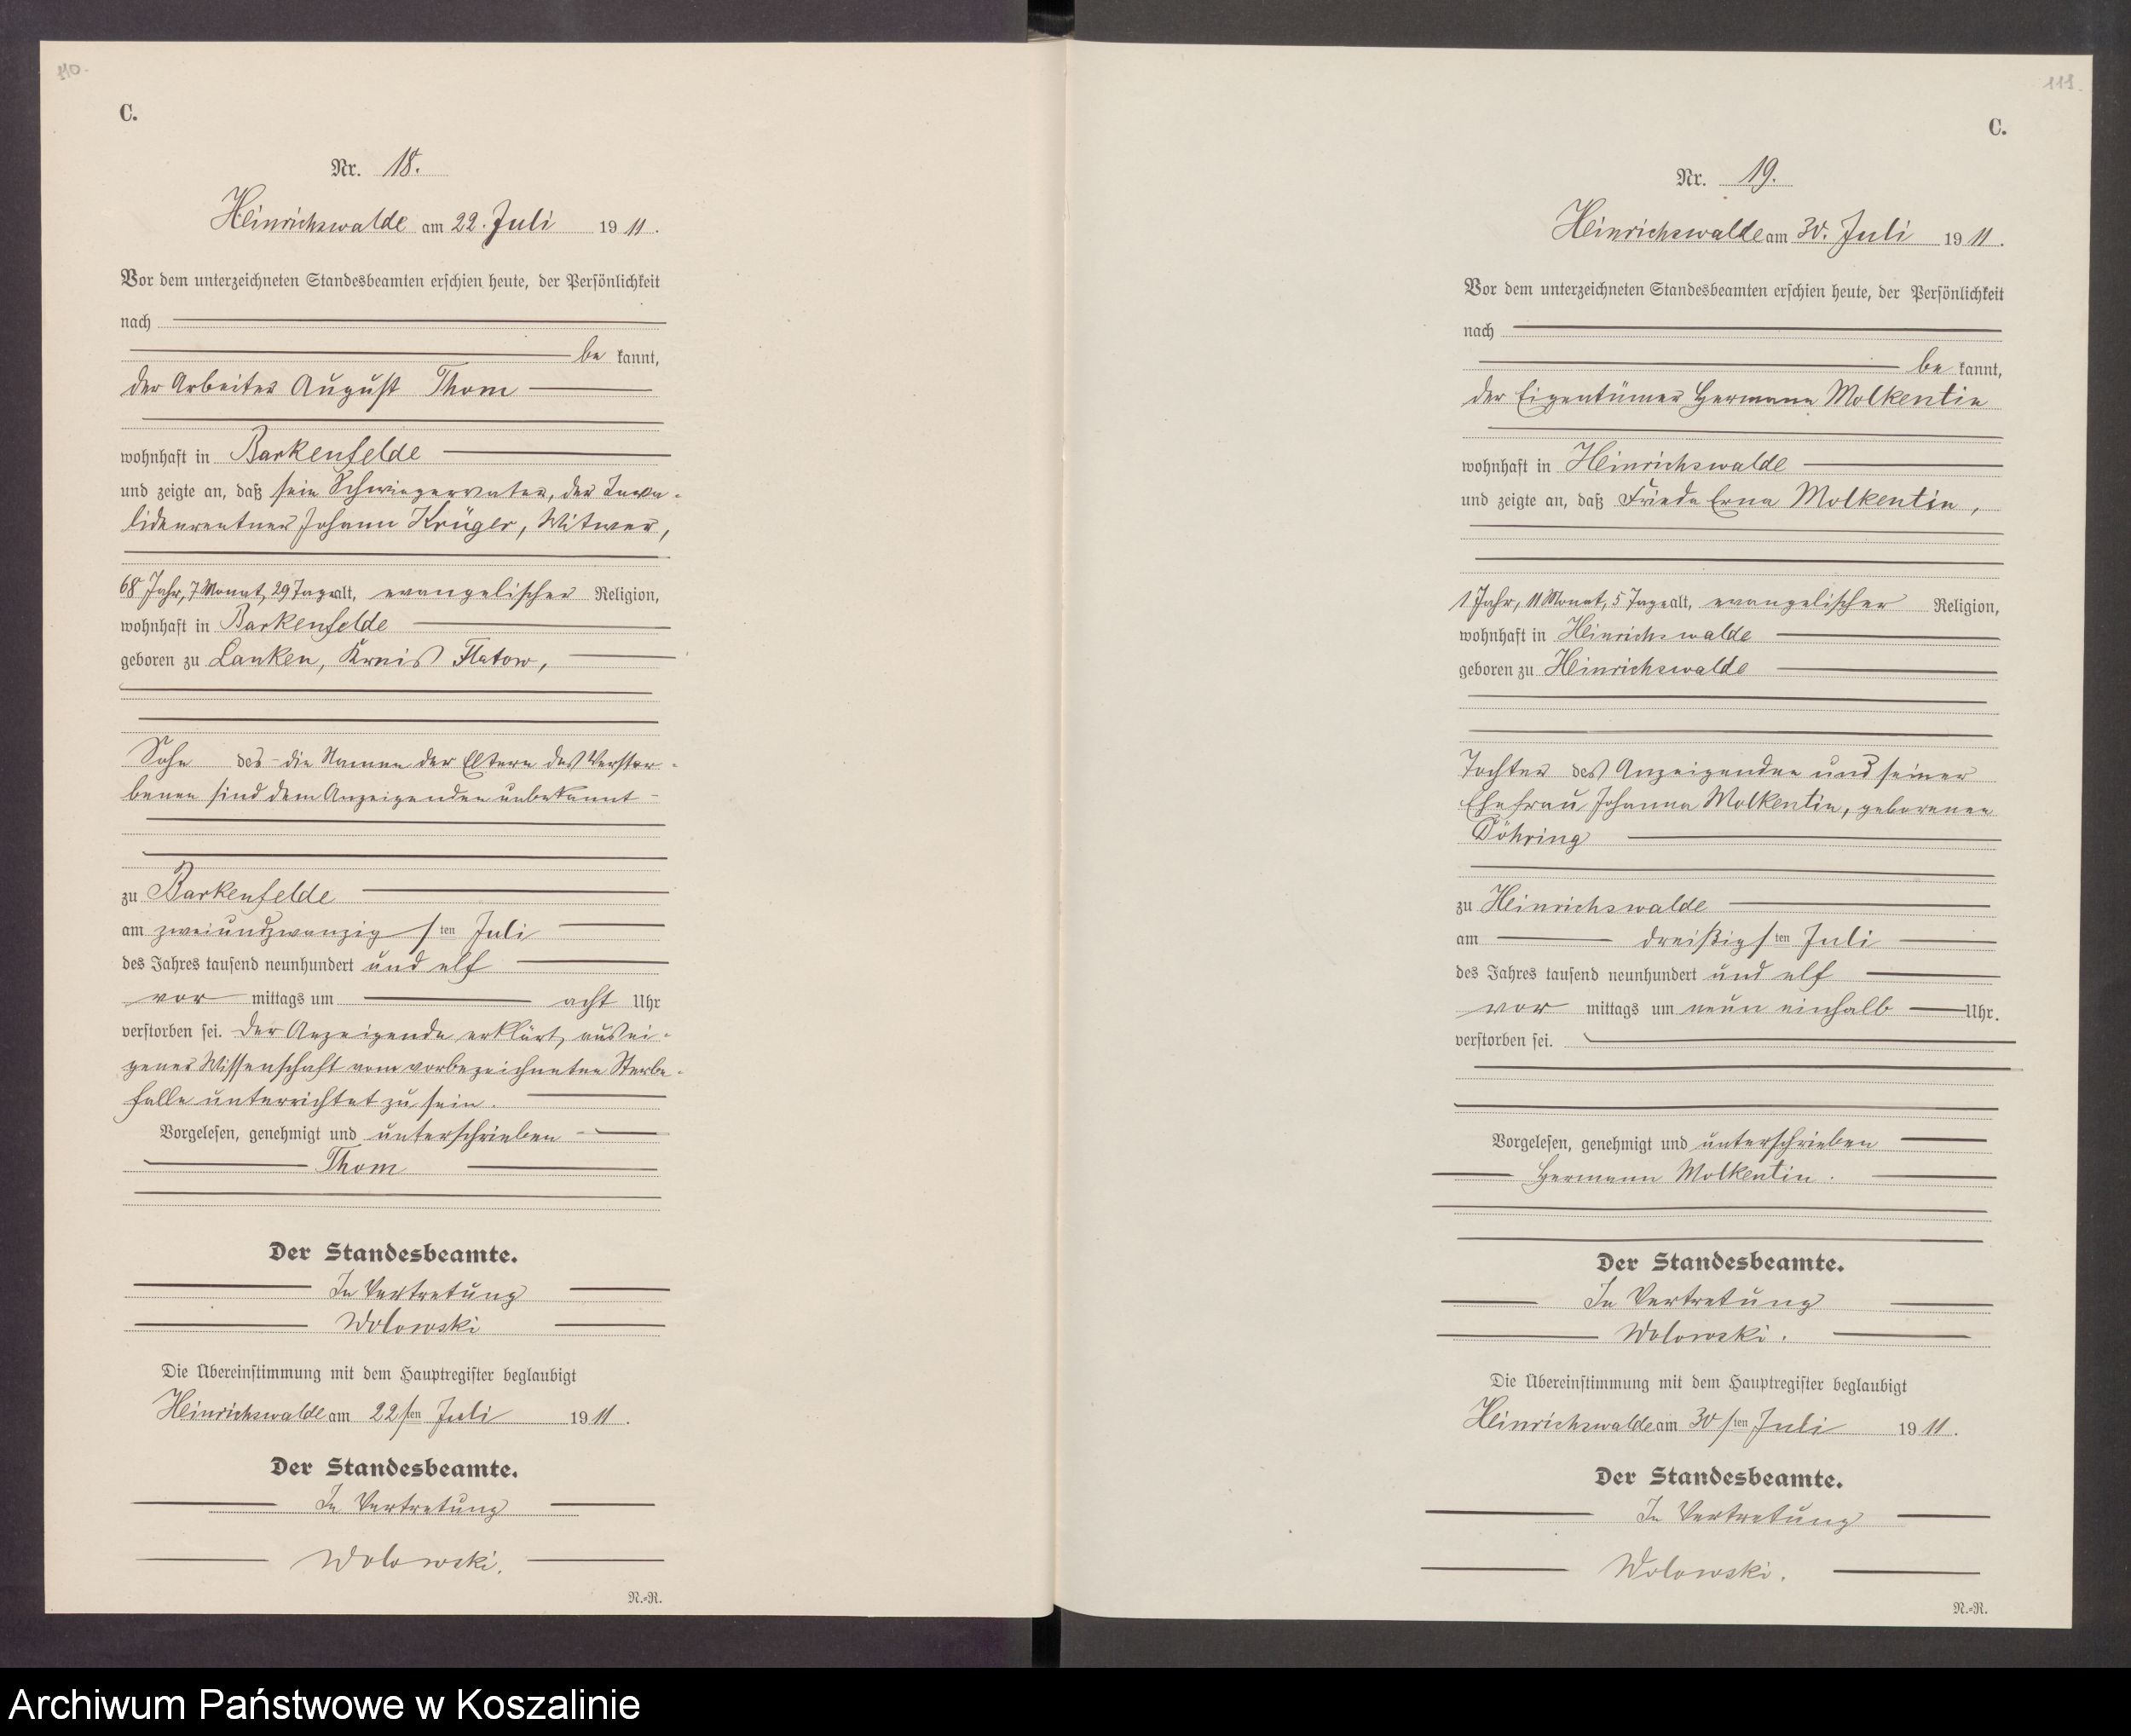 110.
C.
Nr. 18.
Heinrichswalde am 22. Juli 1911.
Vor dem unterzeichneten Standesbeamten erschien heute, der Persönlichkeit
nach
be kannt,
der Arbeiter August Thom
wohnhaft in Barkenfelde
und zeigte an, daß sein Schwiegervater, der Inva-
lidenrentner Johann Krüger, Witwer,
68 Jahr, 7 Monat, 29 Tage alt, evangelischer Religion,
wohnhaft in Barkenfelde
geboren zu Lanken, Kreis Flatow,
Sohn des - die Namen der Eltern des Verstor-
benen sind dem Anzeigenden unbekannt -
zu Barkenfelde
am zweiundzwanzigsten Juli
des Jahres tausend neunhundert und elf
vor mittags um acht Uhr
verstorben sei. Der Anzeigende erklärt, aus ei-
gener Wissenschaft vom vorbezeichneten Sterbe-
falle unterrichtet zu sein.
Vorgelesen, genehmigt und unterschrieben
Thom
Der Standesbeamte.
In Vertretung
Wolowski
Die Übereinstimmung mit dem Hauptregister beglaubigt
Heinrichswalde am 22sten Juli 1911.
Der Standesbeamte.
In Vertretung
Wolowski.
N.-R.
111.
C.
Nr. 19.
Heinrichswalde am 30. Juli 1911.
Vor dem unterzeichneten Standesbeamten erschien heute, der Persönlichkeit
nach
be kannt,
der Eigentümer Hermann Molkentin
wohnhaft in Heinrichswalde
und zeigte an, daß Frieda Erna Molkentin,
1 Jahr, 11 Monat, 5 Tage alt, evangelischer Religion,
wohnhaft in Heinrichswalde
geboren zu Heinrichswalde
Tochter des Anzeigenden und seiner
Ehefrau Johanna Molkentin, geborenen
Döhring
zu Heinrichswalde
am dreißigsten Juli
des Jahres tausend neunhundert und elf
vor mittags um neun einhalb Uhr.
verstorben sei.
Vorgelesen, genehmigt und unterschrieben
Hermann Molkentin.
Der Standesbeamte.
In Vertretung
Wolowski.
Die Übereinstimmung mit dem Hauptregister beglaubigt
Heinrichswalde am 30sten Juli 1911.
Der Standesbeamte.
In Vertretung
Wolowski.
N.-R.
Archiwum Państwowe w Koszalinie